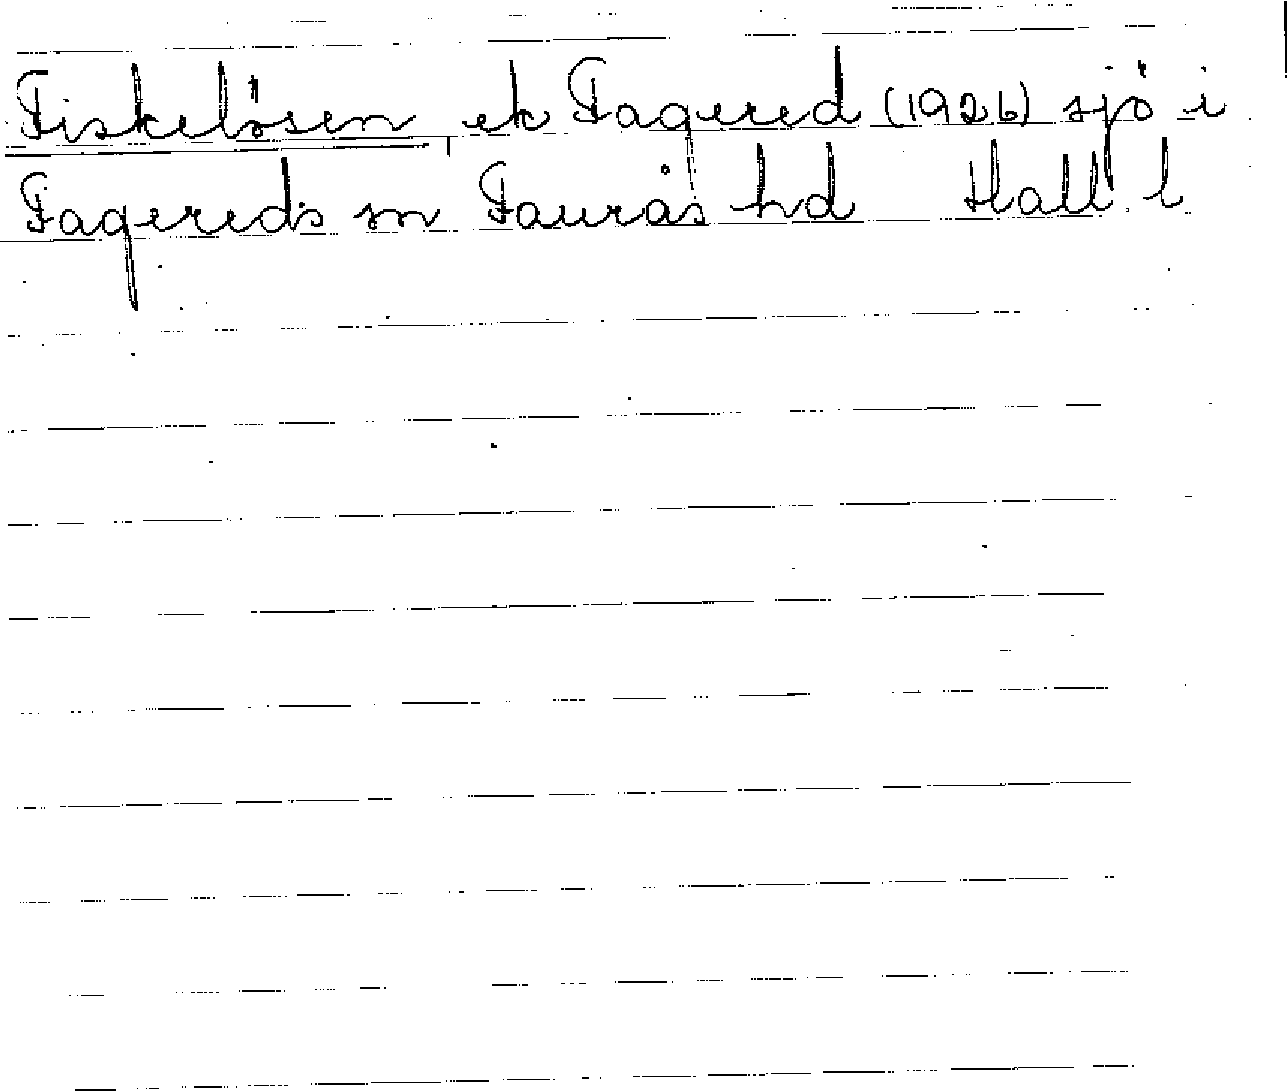 Fiskelösen ek Fagered (1926) sjö i
Fagereds sn Faurås hd Hall. l